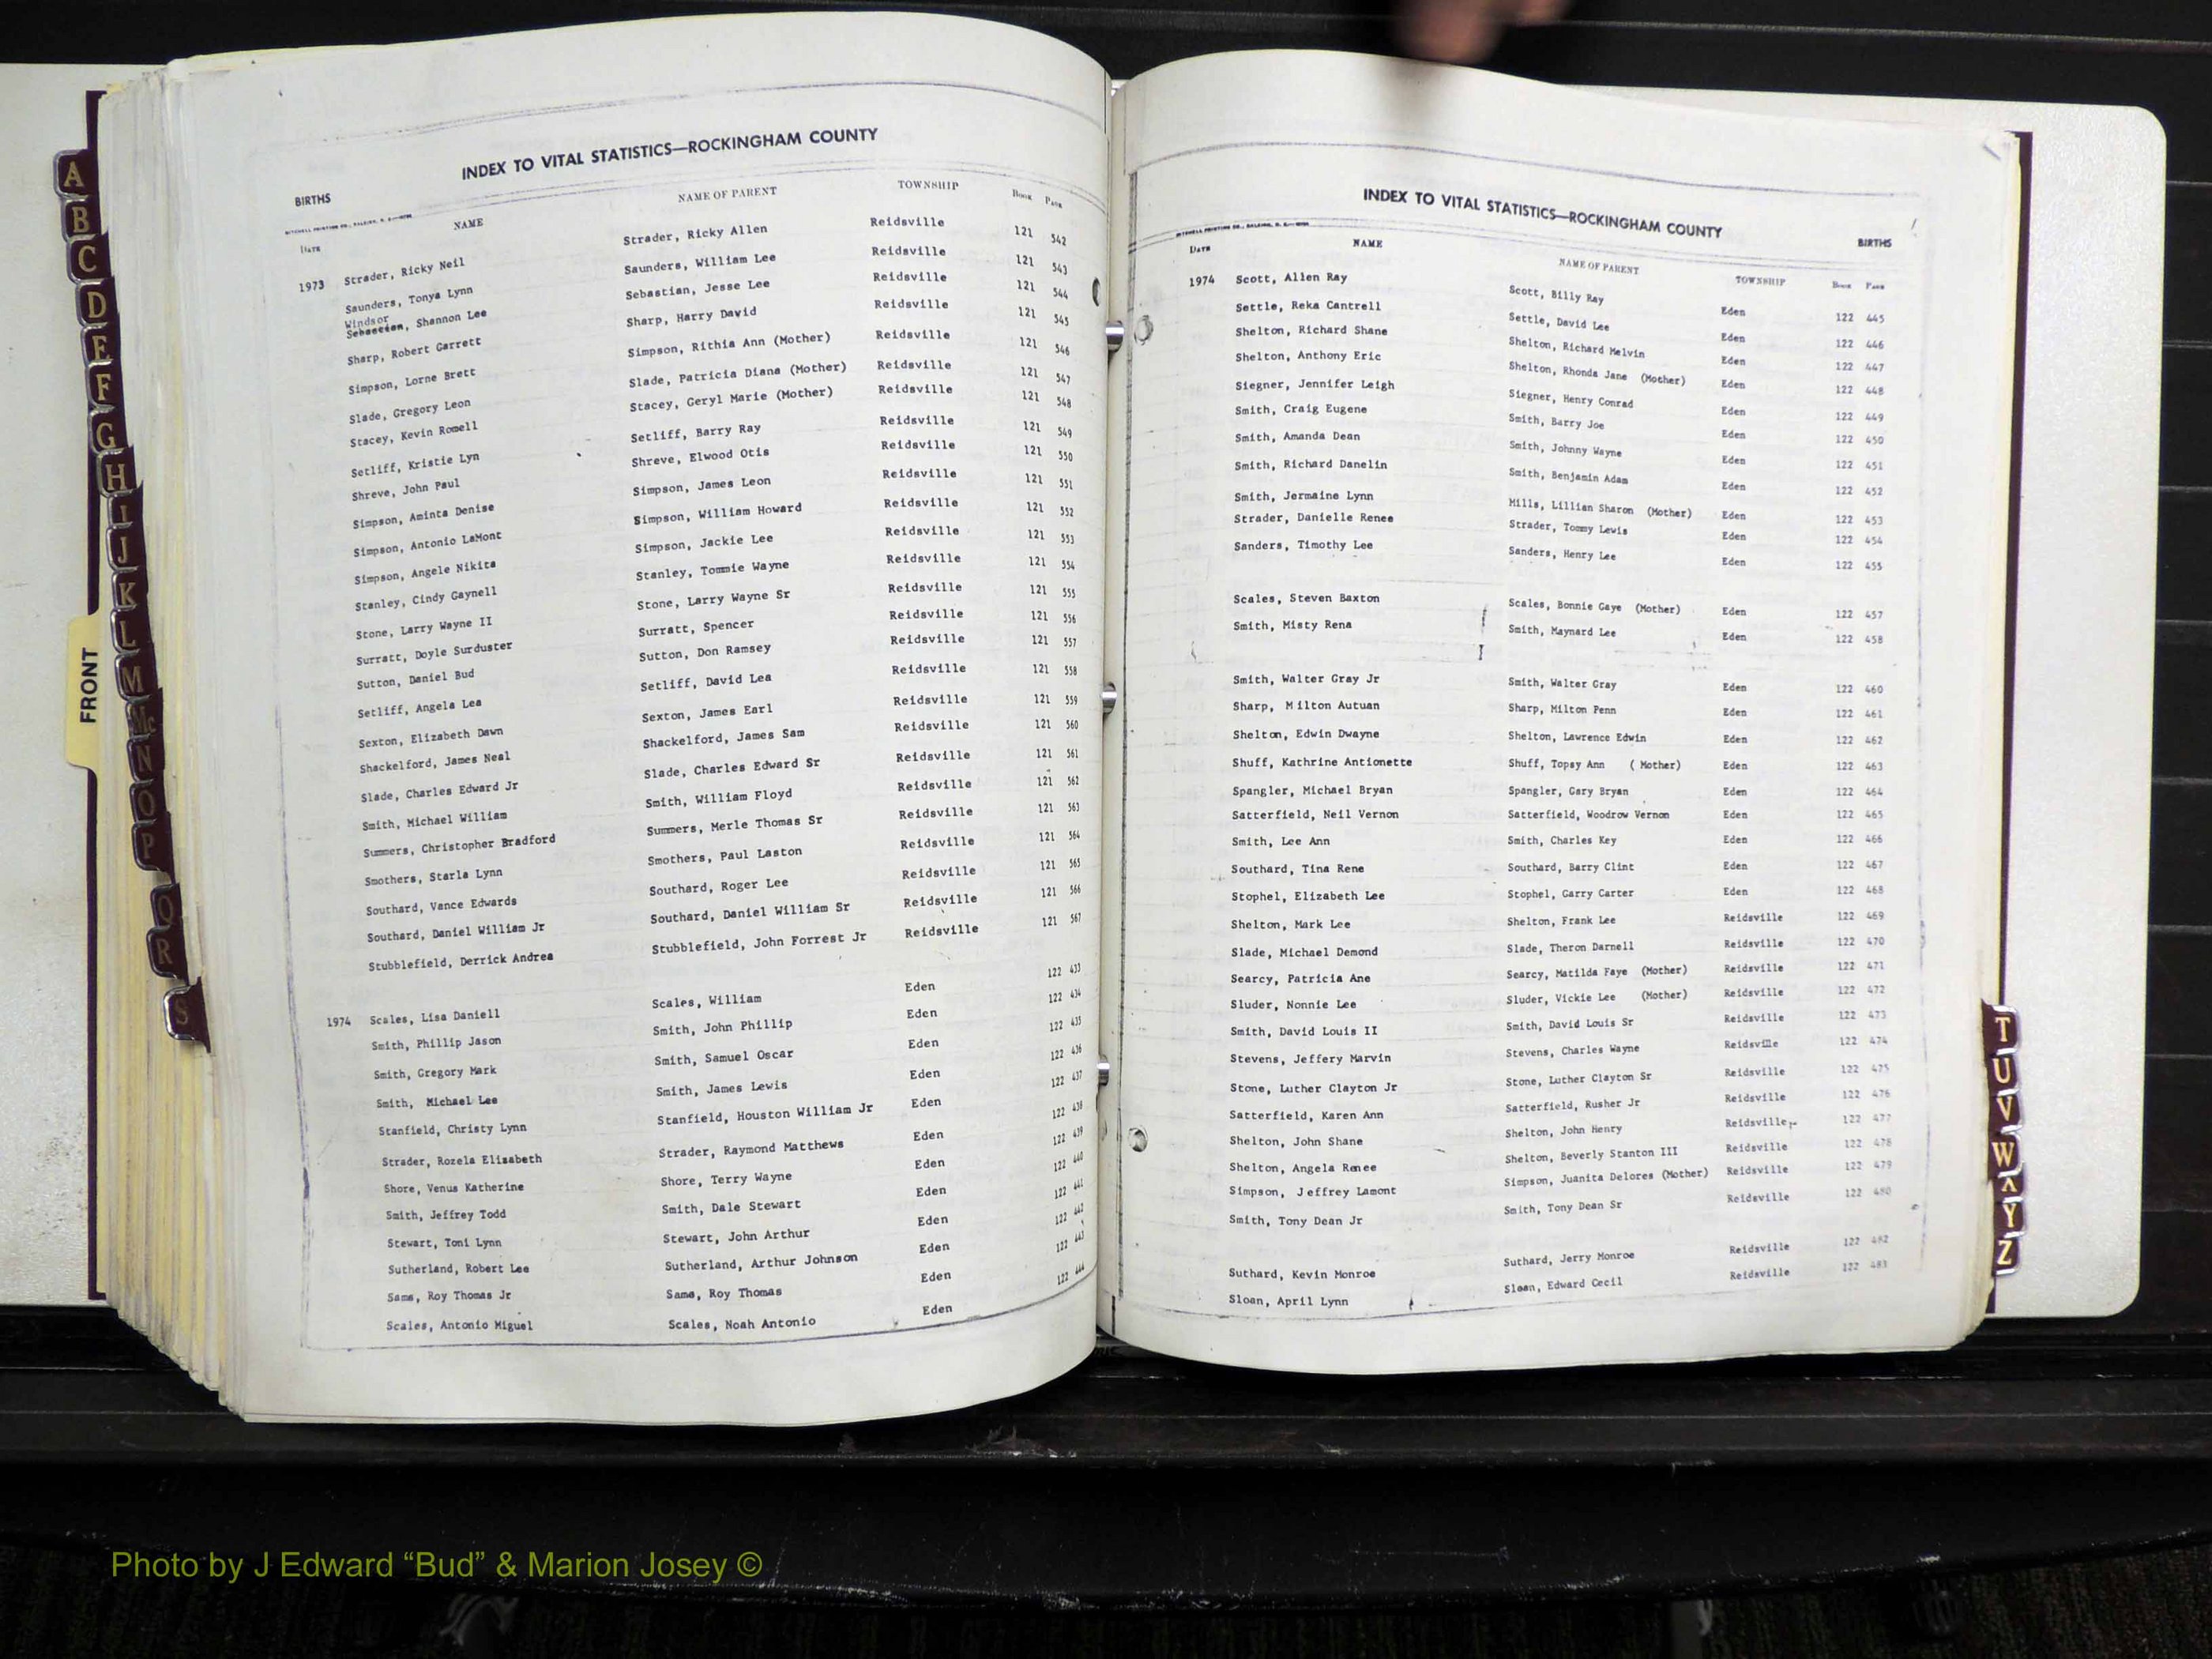 INDEX TO VITAL STATISTICS—ROCKINGHAM COUNTY
BIRTHS
DATE NAME NAME OF PARENT TOWNSHIP BOOK PAGE
1973 Strader, Ricky Neil Strader, Ricky Allen Reidsville 121 542
Saunders, Tonya Lynn Saunders, William Lee Reidsville 121 543
Windsor
Sebastian, Shannon Lee Sebastian, Jesse Lee Reidsville 121 544
Sharp, Robert Garrett Sharp, Harry David Reidsville 121 545
Simpson, Lorne Brett Simpson, Rithia Ann (Mother) Reidsville 121 546
Slade, Gregory Leon Slade, Patricia Diana (Mother) Reidsville 121 547
Stacey, Kevin Romell Stacey, Geryl Marie (Mother) Reidsville 121 548
Setliff, Kristie Lyn Setliff, Barry Ray Reidsville 121 549
Shreve, John Paul Shreve, Elwood Otis Reidsville 121 550
Simpson, Aminta Denise Simpson, James Leon Reidsville 121 551
Simpson, Antonio LaMont Simpson, William Howard Reidsville 121 552
Simpson, Angele Nikita Simpson, Jackie Lee Reidsville 121 553
Stanley, Cindy Gaynell Stanley, Tommie Wayne Reidsville 121 554
Stone, Larry Wayne II Stone, Larry Wayne Sr Reidsville 121 555
Surratt, Doyle Surduster Surratt, Spencer Reidsville 121 556
Sutton, Daniel Bud Sutton, Don Ramsey Reidsville 121 557
Setliff, Angela Lea Setliff, David Lea Reidsville 121 558
Sexton, Elizabeth Dawn Sexton, James Earl Reidsville 121 559
Shackelford, James Neal Shackelford, James Sam Reidsville 121 560
Slade, Charles Edward Jr Slade, Charles Edward Sr Reidsville 121 561
Smith, Michael William Smith, William Floyd Reidsville 121 562
Summers, Christopher Bradford Summers, Merle Thomas Sr Reidsville 121 563
Smothers, Starla Lynn Smothers, Paul Laston Reidsville 121 564
Southard, Vance Edwards Southard, Roger Lee Reidsville 121 565
Southard, Daniel William Jr Southard, Daniel William Sr Reidsville 121 566
Stubblefield, Derrick Andrea Stubblefield, John Forrest Jr Reidsville 121 567
1974 Scales, Lisa Daniell Scales, William Eden 122 433
Smith, Phillip Jason Smith, John Phillip Eden 122 434
Smith, Gregory Mark Smith, Samuel Oscar Eden 122 435
Smith, Michael Lee Smith, James Lewis Eden 122 436
Stanfield, Christy Lynn Stanfield, Houston William Jr Eden 122 437
Strader, Rozela Elizabeth Strader, Raymond Matthews Eden 122 438
Shore, Venus Katherine Shore, Terry Wayne Eden 122 439
Smith, Jeffrey Todd Smith, Dale Stewart Eden 122 440
Stewart, Toni Lynn Stewart, John Arthur Eden 122 441
Sutherland, Robert Lee Sutherland, Arthur Johnson Eden 122 442
Sams, Roy Thomas Jr Sams, Roy Thomas Eden 122 443
Scales, Antonio Miguel Scales, Noah Antonio Eden 122 444
INDEX TO VITAL STATISTICS—ROCKINGHAM COUNTY
BIRTHS
DATE NAME NAME OF PARENT TOWNSHIP BOOK PAGE
1974 Scott, Allen Ray Scott, Billy Ray Eden 122 445
Settle, Reka Cantrell Settle, David Lee Eden 122 446
Shelton, Richard Shane Shelton, Richard Melvin Eden 122 447
Shelton, Anthony Eric Shelton, Rhonda Jane (Mother) Eden 122 448
Siegner, Jennifer Leigh Siegner, Henry Conrad Eden 122 449
Smith, Craig Eugene Smith, Barry Joe Eden 122 450
Smith, Amanda Dean Smith, Johnny Wayne Eden 122 451
Smith, Richard Danelin Smith, Benjamin Adam Eden 122 452
Smith, Jermaine Lynn Mills, Lillian Sharon (Mother) Eden 122 453
Strader, Danielle Renee Strader, Tommy Lewis Eden 122 454
Sanders, Timothy Lee Sanders, Henry Lee Eden 122 455
Scales, Steven Baxton Scales, Bonnie Gaye (Mother) Eden 122 457
Smith, Misty Rena Smith, Maynard Lee Eden 122 458
Smith, Walter Gray Jr Smith, Walter Gray Eden 122 460
Sharp, Milton Autuan Sharp, Milton Penn Eden 122 461
Shelton, Edwin Dwayne Shelton, Lawrence Edwin Eden 122 462
Shuff, Kathrine Antionette Shuff, Topsy Ann ( Mother) Eden 122 463
Spangler, Michael Bryan Spangler, Gary Bryan Eden 122 464
Satterfield, Neil Vernon Satterfield, Woodrow Vernon Eden 122 465
Smith, Lee Ann Smith, Charles Key Eden 122 466
Southard, Tina Rene Southard, Barry Clint Eden 122 467
Stophel, Elizabeth Lee Stophel, Garry Carter Eden 122 468
Shelton, Mark Lee Shelton, Frank Lee Reidsville 122 469
Slade, Michael Demond Slade, Theron Darnell Reidsville 122 470
Searcy, Patricia Ane Searcy, Matilda Faye (Mother) Reidsville 122 471
Sluder, Nonnie Lee Sluder, Vickie Lee (Mother) Reidsville 122 472
Smith, David Louis II Smith, David Louis Sr Reidsville 122 473
Stevens, Jeffery Marvin Stevens, Charles Wayne Reidsville 122 474
Stone, Luther Clayton Jr Stone, Luther Clayton Sr Reidsville 122 475
Satterfield, Karen Ann Satterfield, Rusher Jr Reidsville 122 476
Shelton, John Shane Shelton, John Henry Reidsville 122 477
Shelton, Angela Renee Shelton, Beverly Stanton III Reidsville 122 478
Simpson, Jeffrey Lamont Simpson, Juanita Delores (Mother) Reidsville 122 479
Smith, Tony Dean Jr Smith, Tony Dean Sr Reidsville 122 480
Suthard, Kevin Monroe Suthard, Jerry Monroe Reidsville 122 482
Sloan, April Lynn Sloan, Edward Cecil Reidsville 122 483
A
B
C
D
E
F
G
H
I
J
K
L
M
Mc
N
O
P
Q
R
S
FRONT
T
U
V
W
X
Y
Z
Photo by J Edward “Bud” & Marion Josey ©